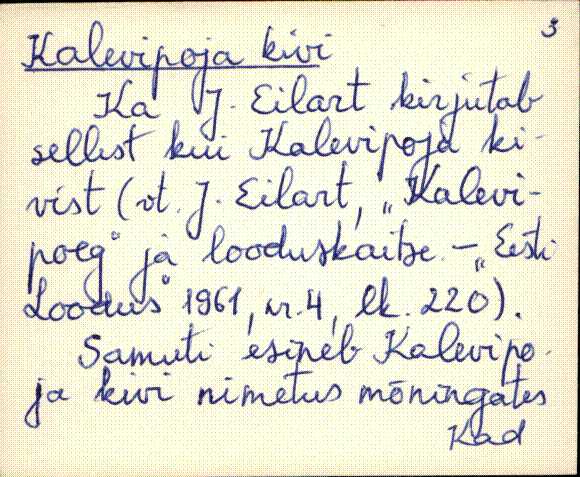 3
Kalevipoja kivi
Ka J. Eilart kirjutab
sellist kui Kalevipoja ki-
vist (vt. J. Eilart, „Kalevi-
poeg" ja looduskaitse. – „Eesti
Loodus" 1961, nr. 4, lk. 220).
Samuti esineb Kalevipo-
ja kivi nimetus mõningates
Kad